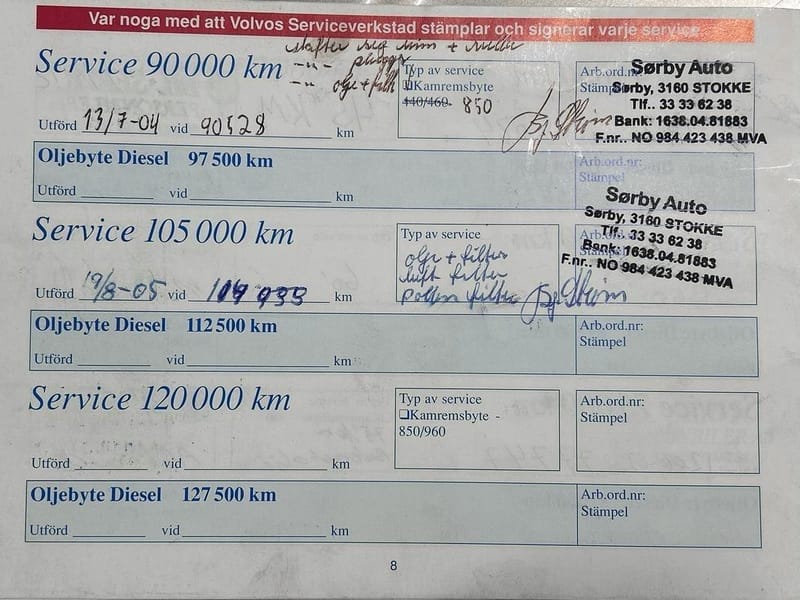 Var noga med att Volvos Serviceverkstad stämplar och signerar varje service.
skifter reg reim + rulle
-"- plugger
-"- olje + filt
Service 90 000 km
Typ av service
❑Kamremsbyte
140/460- 850
Arb.ord.nr:
Stämpel
Sørby Auto
Sørby, 3160 STOKKE
Tlf.. 33 33 62 38
Bank: 1638.04.81883
F.nr.. NO 984 423 438 MVA
Utförd 13/7-04 vid 90528 km
Oljebyte Diesel 97 500 km
Arb.ord.nr:
Stämpel
Utförd vid km
Service 105 000 km
Typ av service
olje + filter
luft filter
pollen filter
Arb.ord.nr:
Sørby Auto
Sørby, 3160 STOKKE
Tlf.. 33 33 62 38
Bank: 1638.04.81883
F.nr.. NO 984 423 438 MVA
Utförd 19/8-05 vid 104 933 km
Oljebyte Diesel 112 500 km
Arb.ord.nr:
Stämpel
Utförd vid km
Service 120 000 km
Typ av service
❑Kamremsbyte -
850/960
Arb.ord.nr:
Stämpel
Utförd vid km
Oljebyte Diesel 127 500 km
Arb.ord.nr:
Stämpel
Utförd vid km
8